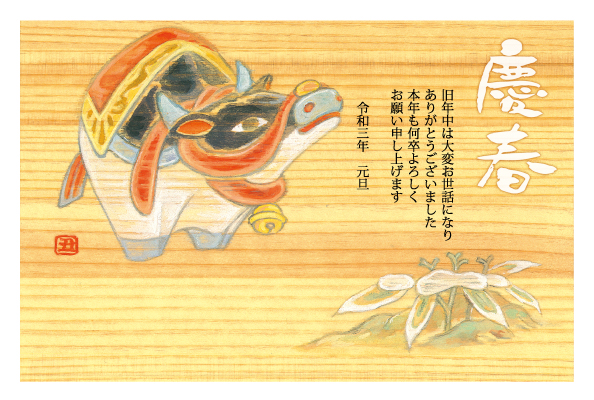 慶春
旧年中は大変お世話になり
ありがとうございました
本年も何卒よろしく
お願い申し上げます
令和三年　元旦